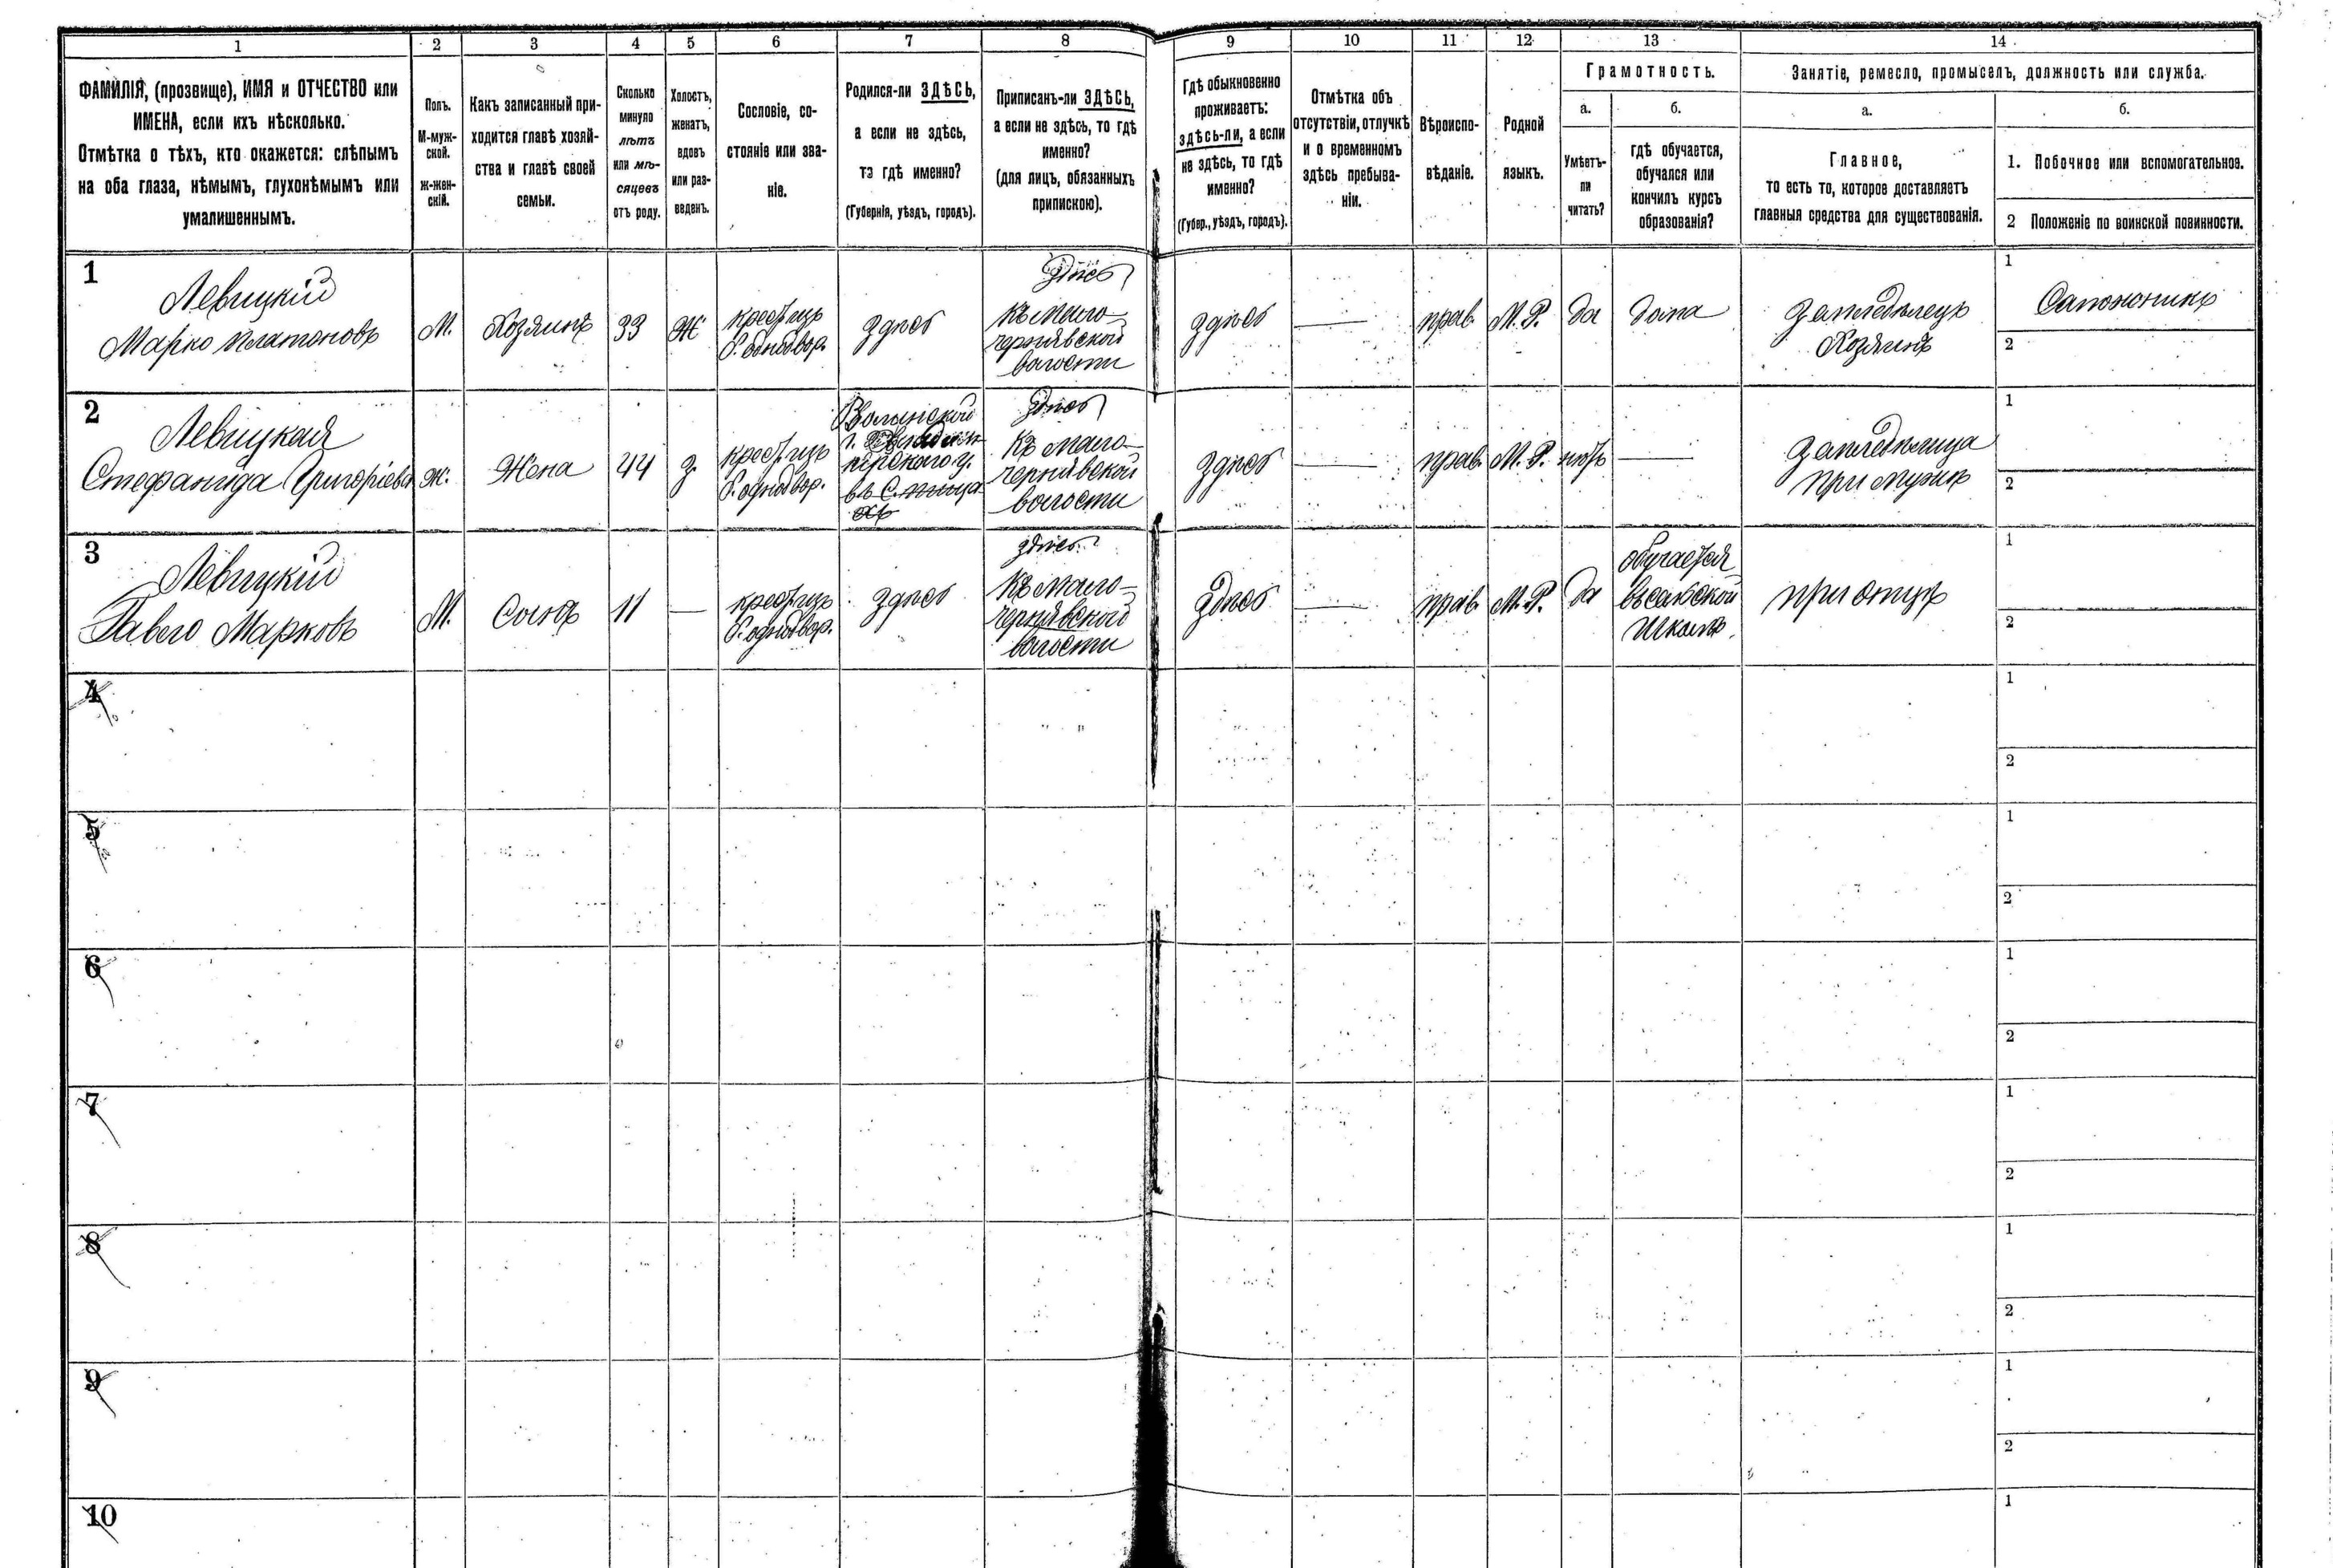 1 2 3 4 5 6 7 8 9 10 11 12 13 14
ФАМИЛІЯ, (прозвище), ИМЯ и ОТЧЕСТВО или
ИМЕНА, если ихъ нѣсколько.
Отмѣтка о тѣхъ, кто окажется: слѣпымъ
на оба глаза, нѣмымъ, глухонѣмымъ или
умалишеннымъ.
Полъ.
М-муж-
ской.
ж-жен-
скій.
Какъ записанный при-
ходится главѣ хозяй-
ства и главѣ своей
семьи.
Сколько
минуло
лѣтъ
или мѣ-
сяцевъ
отъ роду.
Холостъ,
женатъ,
вдовъ
или раз-
веденъ.
Сословіе, со-
стояніе или зва-
ніе.
Родился-ли ЗДѢСЬ,
а если не здѣсь,
то гдѣ именно?
(Губернія, уѣздъ, городъ).
Приписанъ-ли ЗДѢСЬ,
а если не здѣсь, то гдѣ
именно?
(для лицъ, обязанныхъ
припискою).
Гдѣ обыкновенно
проживаетъ:
здѣсь-ли, а если
не здѣсь, то гдѣ
именно?
(Губер., уѣздъ, городъ).
Отмѣтка объ
отсутствіи, отлучкѣ
и о временномъ
здѣсь пребыва-
ніи.
Вѣроиспо-
вѣданіе.
Родной
языкъ.
Грамотность.
а.
Умѣетъ-
ли
читать?
б.
гдѣ обучается,
обучался или
кончилъ курсъ
образованія?
Занятіе, ремесло, промыселъ, должность или служба.
а.
Главное,
то есть то, которое доставляетъ
главныя средства для существованія.
б.
1. Побочное или вспомогательное.
2 Положеніе по воинской повинности.
1
Левицкій
Марко Платоновъ
М.
Хозяинъ
33
Ж
крестьянъ
б. однодвор.
здѣсь
здѣсь
къ мало-
чернявской
волости
здѣсь
—
прав.
М. Р.
да
дома
земледѣлецъ
Хозяинъ
1
Сапожникъ
2
2
Левицкая
Стефанида Григоріева
ж.
Жена
44
з.
б. однодвор.
Волынской
здѣсь
къ мало-
чернявской
волости
здѣсь
—
прав.
М. Р.
нѣтъ
—
земледѣлица
при мужѣ
1
2
3
Левицкій
Павло Марковъ
М.
Сынъ
11
—
б. однодвор.
здѣсь
здѣсь
къ мало-
чернявской
волости
здѣсь
—
прав.
М. Р.
да
обучается
въ сельской
школѣ
при отцѣ
1
2
4
1
2
5
1
2
6
1
2
7
1
2
8
1
2
9
1
2
10
1